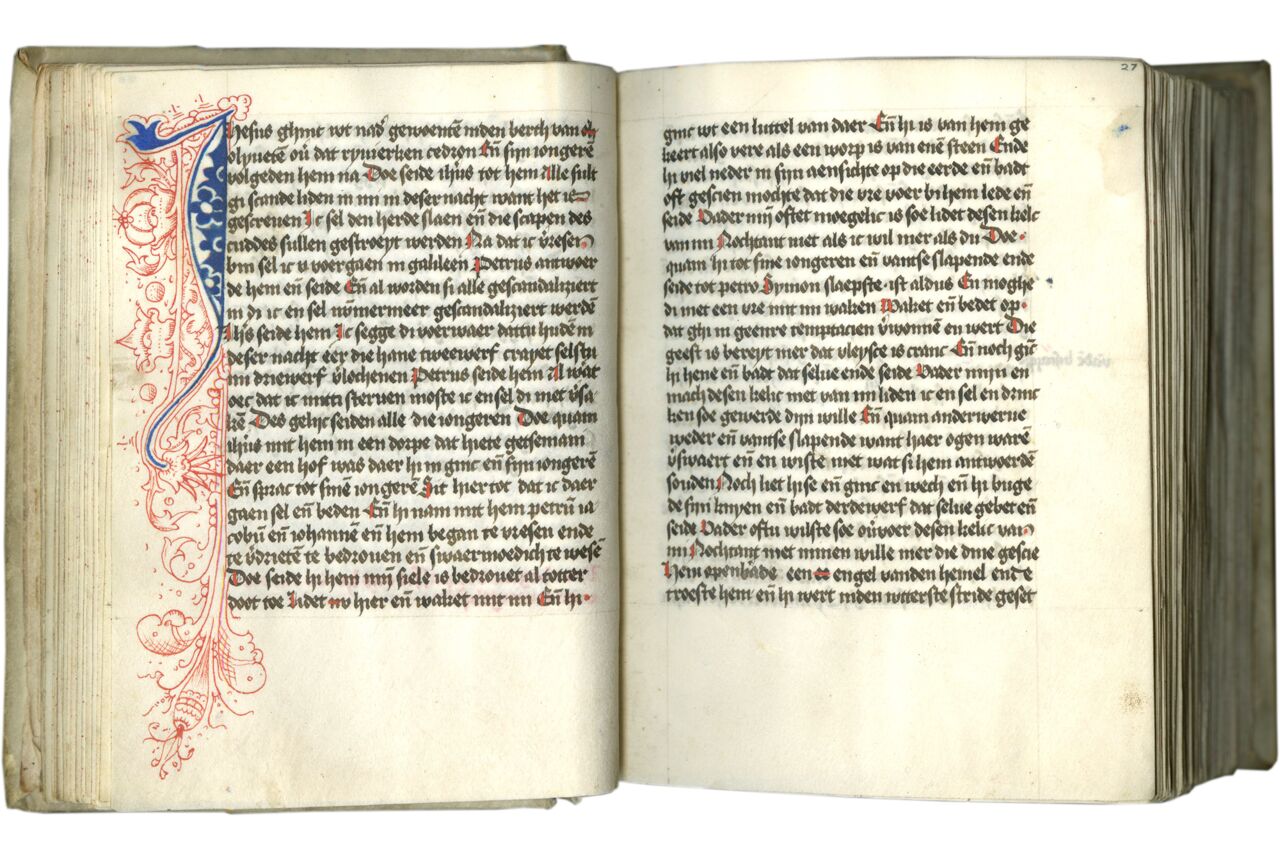 Ihesus ghinc wt nad' gewoentē inden berch van
olyuetē ou̓ dat ryuierken cedron Eñ sijn iongerē
volgeden hem na Doe seide ihūs tot hem Alle sult
gi scande liden in mi in deser nacht want het is
gescreuen Ic sel den herde slaen eñ die scapen des
cuddes sullen gestroeyt werden Na dat ic v̓resen
bin sel ic v voergaen in galileen Petrus antwoer
de hem eñ seide Eñ al worden si alle gescandaliziert
in di ic en sel nv̄mermeer gescandaliziert werdē
Ihūs seide hem Ic segge di voerwaer dattu huden in
deser nacht eer die hane tweewerf crayet selstu
mi driewerf v̓lochenen Petrus seide hem Al wat
oec dat ic mitti sterven moste ic en sel di niet v̓sa
kē Des gelijc seiden alle die iongeren Doe quam
ihūs mit hem in een dorpe dat hiete getsemani
daer een hof was daer hi in ginc eñ sijn iongerē
Eñ sprac tot sinē iongerē Sit hier tot dat ic daer
gaen sel eñ beden Eñ hi nam mit hem petrū ia
cobū eñ iohannē eñ hem began te vresen ende
te v̓drietē te bedrouen eñ swaermoedich te wesē
Doe seide hi hem mijn siele is bedrouet al totter
doot toe Lidet hier eñ waket mit mi Eñ hi
27
ginc wt een luttel van daer Eñ hi is van hem ge
keert also vere als een worp is van enē steen Ende
hi viel neder in sijn aensichte op die eerde eñ badt
oft gescien mochte dat die vre voer bi hem lede eñ
seide Vader mijn oftet moegelic is soe lidet desen kelc
van mi Nochtant niet als ic wil mer als du Doe
quam hi tot sine iongeren eñ vantse slapende ende
seide tot petro Symon slaepste ist aldus En moghe
di niet een vre mit mi waken Waket eñ bedet op
dat ghi in geenre temptacien v̓wonnē en wert Die
geest is bereyt mer dat vleysce is cranc Eñ noch ginc
hi hene eñ badt dat selue ende seide Vader mijn en
mach desen kelic niet van mi liden ic en sel en drinc
ken soe gewerde dijn wille Eñ quam anderwerue
weder eñ vantse slapende want haer ogen warē
v̓swaert eñ en wiste niet wat si hem antwoerdē
souden Noch liet hise eñ ginc en wech eñ hi buge
de sijn knyen eñ badt derdewerf dat selue gebet eñ
seide Vader oftu wilste soe ou̓voer desen kelic van
mi Nochtant niet minen wille mer die dine gescie
Hem openbāde een engel vanden hemel ende
troeste hem eñ hi wert inden wtterste stride geset